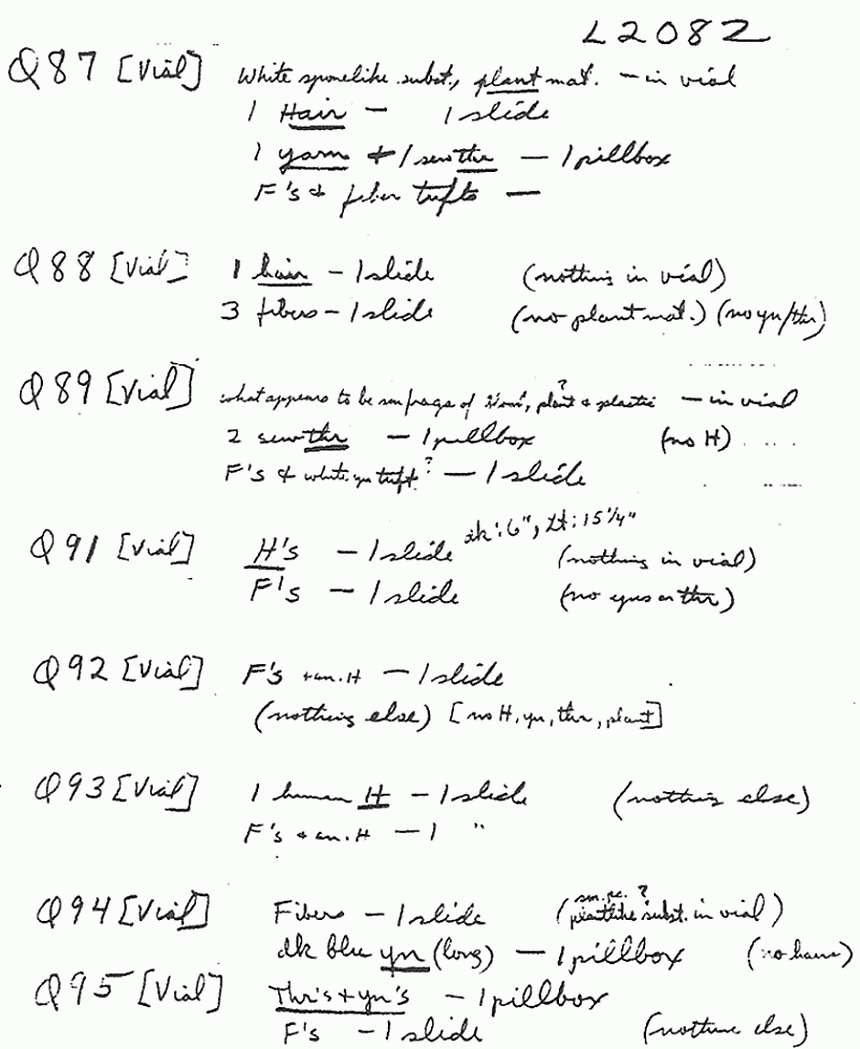 L2082
Q87 [Vial] White sporelike subst., plant mat. - in vial
1 Hair - 1 slide
1 yarn + 1 sew thr - 1 pillbox
F's + fiber tufts -
Q88 [Vial] 1 hair - 1 slide (nothing in vial)
3 fibers - 1 slide (no plant mat.) (no yn/thr)
Q89 [Vial] what appears to be sm frags of plant? & plastic - in vial
2 sew thr - 1 pillbox (no H)
F's & white yn tuft? - 1 slide
Q91 [Vial] H's - 1 slide dk: 6", Lt: 15 1/4" (nothing in vial)
F's - 1 slide (no yns or thr)
Q92 [Vial] F's + an. H - 1 slide
(nothing else) [no H, yn, thr, plant]
Q93 [Vial] 1 human H - 1 slide (nothing else)
F's + an. H - 1 "
Q94 [Vial] Fibers - 1 slide (sm. pc. plantlike? subst. in vial)
dk blu yn (long) - 1 pillbox (no hairs)
Q95 [Vial] Thr's + yn's - 1 pillbox
F's - 1 slide (nothing else)